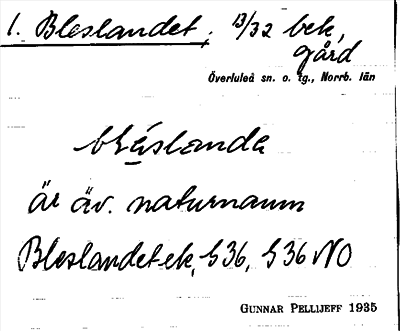 1. Bleslandet, 13/32 bek,
gård
Överluleå sn. o. tg., Norrb. län
är äv. naturnamn
Bleslandet ek, G 36, G 36 NO
GUNNAR PELLIJEFF 1935